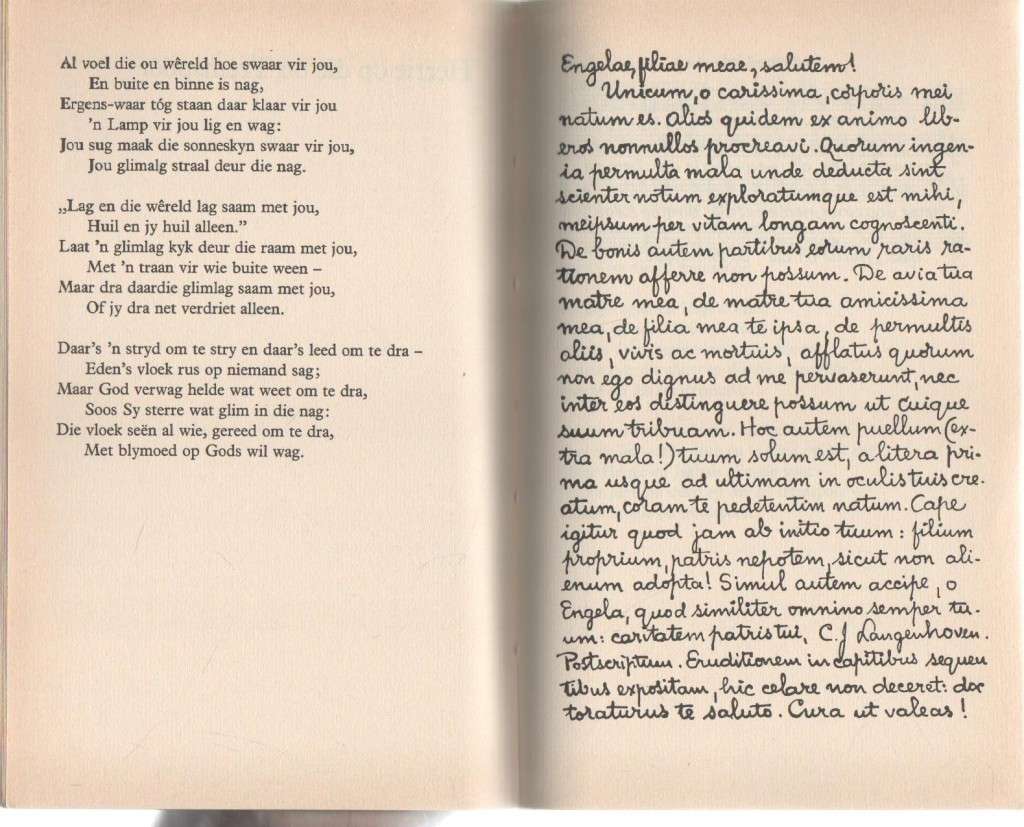 Al voel die ou wêreld hoe swaar vir jou,
En buite en binne is nag,
Ergens-waar tóg staan daar klaar vir jou
'n Lamp vir jou lig en wag:
Jou sug maak die sonneskyn swaar vir jou,
Jou glimalg straal deur die nag.
„Lag en die wêreld lag saam met jou,
Huil en jy huil alleen.”
Laat 'n glimlag kyk deur die raam met jou,
Met 'n traan vir wie buite ween –
Maar dra daardie glimlag saam met jou,
Of jy dra net verdriet alleen.
Daar's 'n stryd om te stry en daar's leed om te dra –
Eden's vloek rus op niemand sag;
Maar God verwag helde wat weet om te dra,
Soos Sy sterre wat glim in die nag:
Die vloek seën al wie, gereed om te dra,
Met blymoed op Gods wil wag.
Engelae, filiae meae, salutem!
Unicum, o carissima, corporis mei
natum es. Alios quidem ex animo lib-
eros nonnullos procreavi. Quorum ingen-
ia permulta mala unde deducta sint
scienter notum exploratumque est mihi,
meipsum per vitam longam cognoscenti.
De bonis autem partibus eorum raris ra-
tionem afferre non possum. De avia tua
matre mea, de matre tua amicissima
mea, de filia mea te ipsa, de permultis
aliis, vivis ac mortuis, afflatus quorum
non ego dignus ad me pervaserunt, nec
inter eos distinguere possum ut cuique
suum tribuam. Hoc autem puellum (ex-
tra mala!) tuum solum est, a litera pri-
ma usque ad ultimam in oculis tuis cre-
atum, coram te pedetentim natum. Cape
igitur quod jam ab initio tuum: filium
proprium, patris nepotem, sicut non ali-
enum adopta! Simul autem accipe, o
Engela, quod similiter omnino semper tu-
um: caritatem patris tui, C.J Langenhoven.
Postscriptum. Eruditionem in capitibus sequen
tibus expositam, hic celare non deceret: doc
toraturus te saluto. Cura ut valeas!